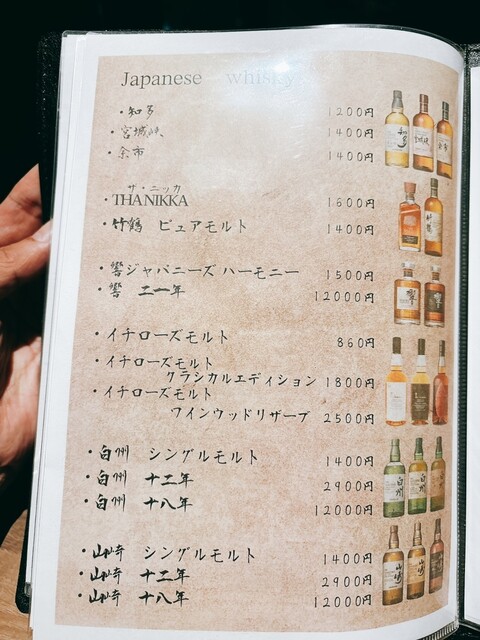 Japanese whisky
・知多 1200円
・宮城峡 1400円
・余市 1400円
ザ・ニッカ
・THANIKKA 1600円
・竹鶴 ピュアモルト 1400円
・響ジャパニーズ ハーモニー 1500円
・響 二一年 12000円
・イチローズモルト 860円
・イチローズモルト
クラシカルエディション 1800円
・イチローズモルト
ワインウッドリザーブ 2500円
・白州 シングルモルト 1400円
・白州 十二年 2900円
・白州 十八年 12000円
・山崎 シングルモルト 1400円
・山崎 十二年 2900円
・山崎 十八年 12000円